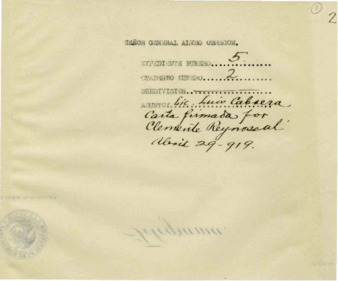 ① 2
SEÑOR GENERAL ALVARO OBREGON.
EXPEDIENTE NUMERO.....5.......
CUADERNO NUMERO.....2........
SUBDIVISION..................
ASUNTO: Lic. Luis Cabrera
Carta firmada por
Clemente Reynoso al
Abril 29-919.
Telegrama